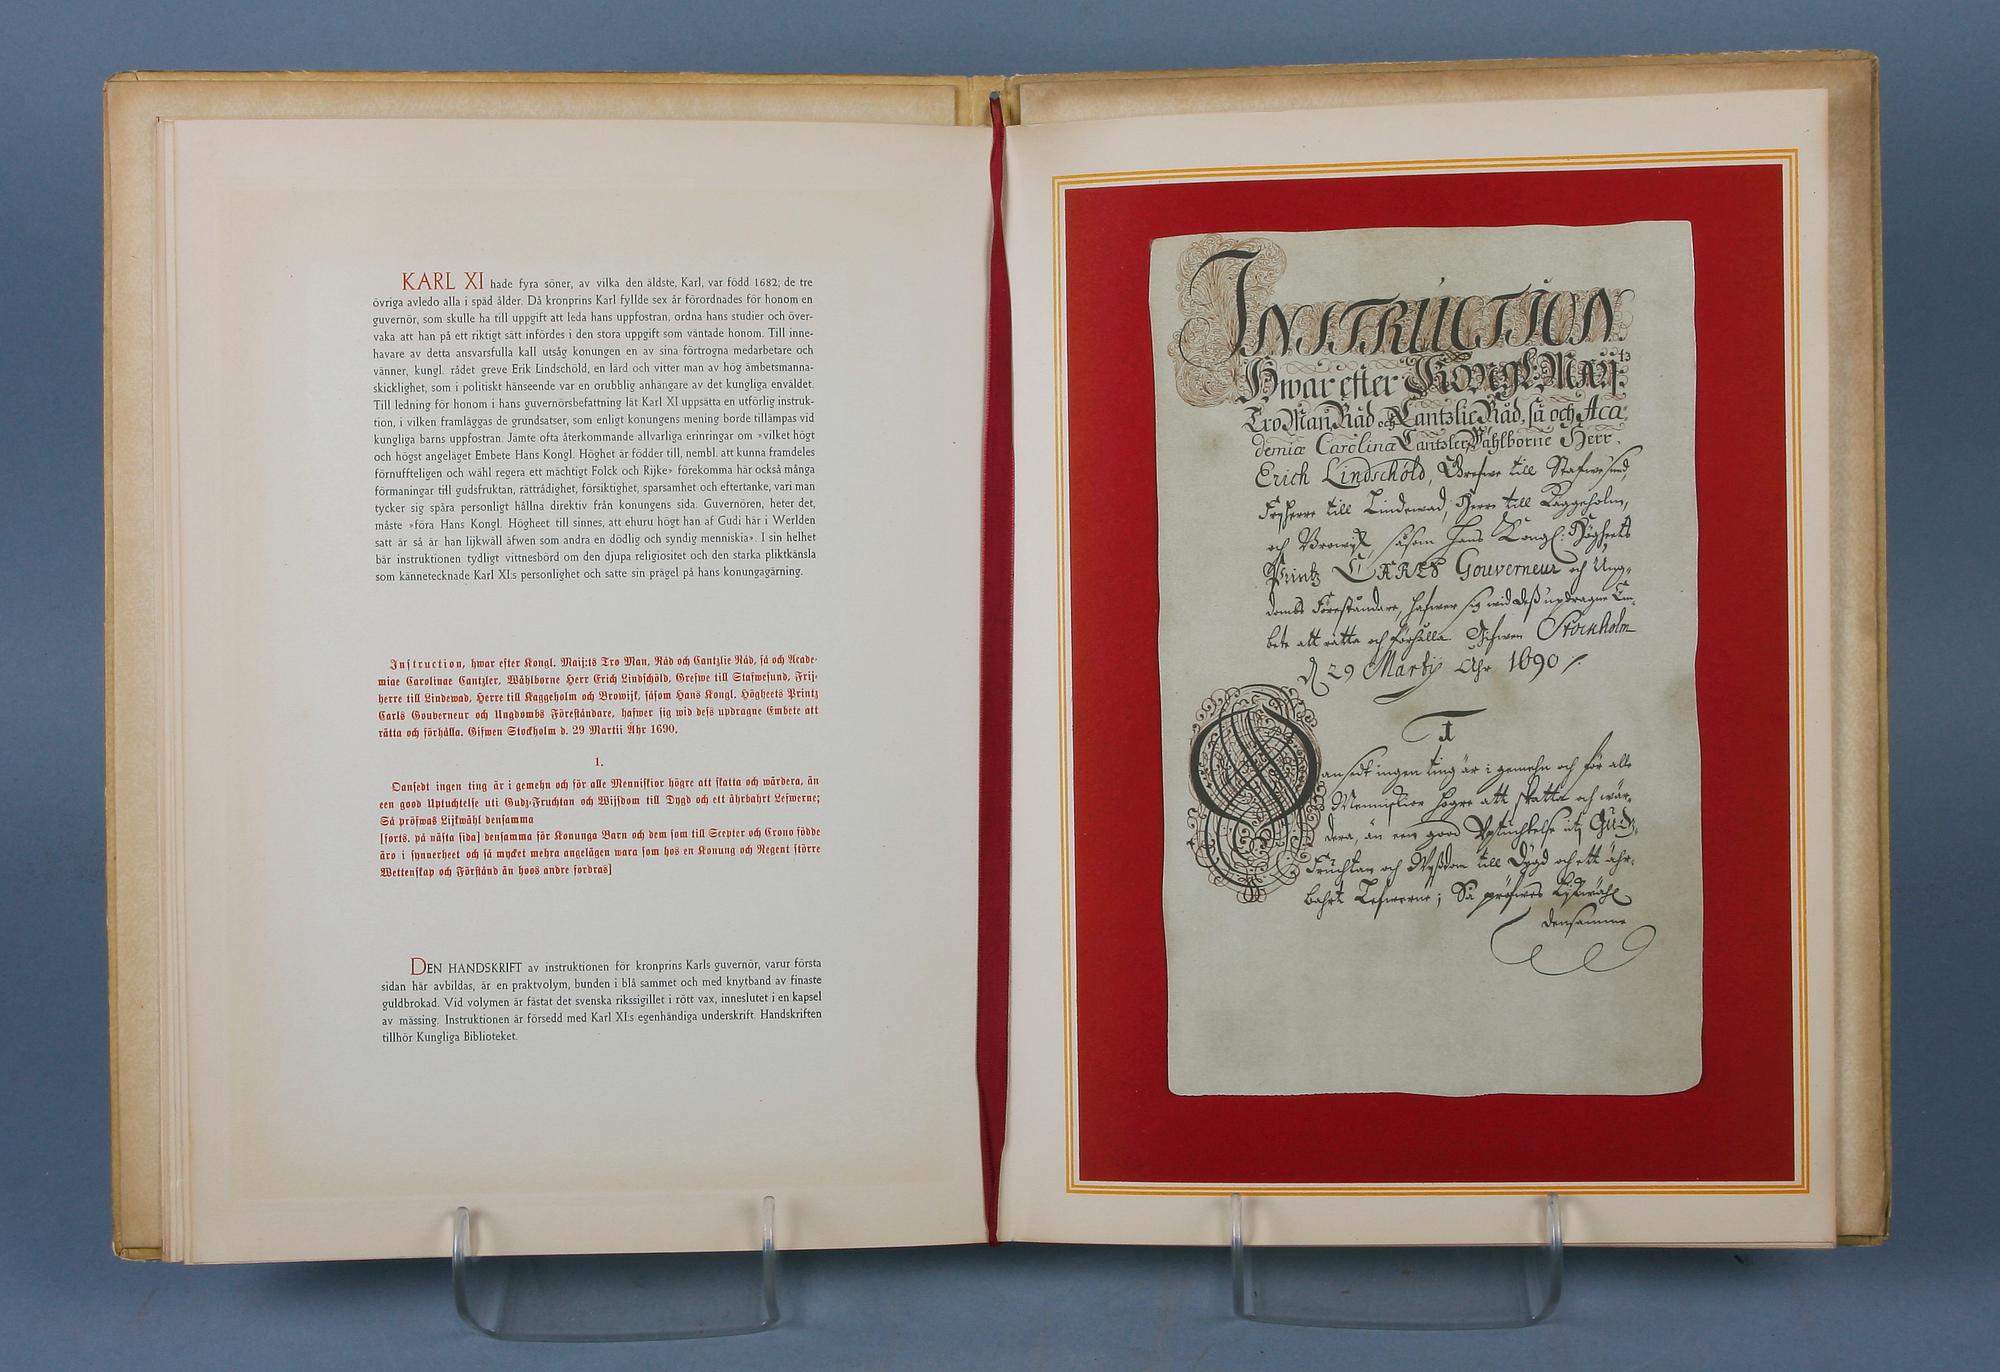 KARL XI hade fyra söner, av vilka den äldste, Karl, var född 1682; de tre
övriga avledo alla i späd ålder. Då kronprins Karl fyllde sex år förordnades för honom en
guvernör, som skulle ha till uppgift att leda hans uppfostran, ordna hans studier och över-
vaka att han på ett riktigt sätt infördes i den stora uppgift som väntade honom. Till inne-
havare av detta ansvarsfulla kall utsåg konungen en av sina förtrogna medarbetare och
vänner, kungl. rådet greve Erik Lindschöld, en lärd och vitter man av hög ämbetsmanna-
skicklighet, som i politiskt hänseende var en orubblig anhängare av det kungliga enväldet.
Till ledning för honom i hans guvernörsbefattning lät Karl XI uppsätta en utförlig instruk-
tion, i vilken framläggas de grundsatser, som enligt konungens mening borde tillämpas vid
kungliga barns uppfostran. Jämte ofta återkommande allvarliga erinringar om »vilket högt
och högst angeläget Embete Hans Kongl. Höghet är födder till, nembl. att kunna framdeles
förnuffteligen och wähl regera ett mächtigt Folck och Rijke» förekomma här också många
förmaningar till gudsfruktan, rättrådighet, försiktighet, sparsamhet och eftertanke, vari man
tycker sig spåra personligt hållna direktiv från konungens sida. Guvernören, heter det,
måste »föra Hans Kongl. Högheet till sinnes, att ehuru högt han af Gudi här i Werlden
satt är så är han lijkwäll äfwen som andra en dödlig och syndig menniskia». I sin helhet
bär instruktionen tydligt vittnesbörd om den djupa religiositet och den starka pliktkänsla
som kännetecknade Karl XI:s personlighet och satte sin prägel på hans konungagärning.
Instruction, hwar efter Kongl. Maij:ts Tro Man, Råd och Cantzlie Råd, så och Acade-
miae Carolinae Cantzler, Wählborne Herr Erich Lindschöld, Grefwe till Stafwesund, Frij-
herre till Lindewad, Herre till Kaggeholm och Browijk, såsom Hans Kongl. Högheets Printz
Carls Gouverneur och Ungdombs Föreståndare, hafwer sig wid dess updragne Embete att
rätta och förhålla. Gifwen Stockholm d. 29 Martii Åhr 1690.
1.
Oansedt ingen ting är i gemehn och för alle Menniskior högre att skatta och wärdera, än
een good Uptuchtelse uti Gudz-Fruchtan och Wijsdom till Dygd och ett ährbahrt Lefwerne;
Så pröfwas Lijkwähl densamma
[forts. på nästa sida] densamma för Konunga Barn och dem som till Scepter och Crono födde
äro i synnerheet och så mycket mehra angelägen wara som hos en Konung och Regent större
Wettenskap och Förstånd än hoos andre fordras]
DEN HANDSKRIFT av instruktionen för kronprins Karls guvernör, varur första
sidan här avbildas, är en praktvolym, bunden i blå sammet och med knytband av finaste
guldbrokad. Vid volymen är fästat det svenska rikssigillet i rött vax, inneslutet i en kapsel
av mässing. Instruktionen är försedd med Karl XI:s egenhändiga underskrift. Handskriften
tillhör Kungliga Biblioteket.
INSTRUCTION
Hwar efter Kongl. Maij:tz
Tro Man, Råd och Cantzlie Råd, så och Aca
demiæ Carolinæ Cantzler, Wählborne Herr.
Erich Lindschöld, Grefwe till Stafwesund,
Frijherre till Lindewad, Herre till Kaggeholm,
och Browijk, såsom Hans Kongl: Högheets
Printz CARLS Gouverneur och Ung-
dombs Föreståndare, hafwer sig wid dess updragne Em-
bete att rätta och förhålla. Gifwen Stockholm
d 29 Martij Åhr 1690 /.
1
Oansedt ingen ting är i gemehn och för alle
Menniskior högre att skatta och wär-
dera, än een good Uptuchtelse uti Gudz-
Fruchtan och Wijsdom till Dygd och ett ähr-
bahrt Lefwerne; Så pröfwes Lijkwähl
densamme